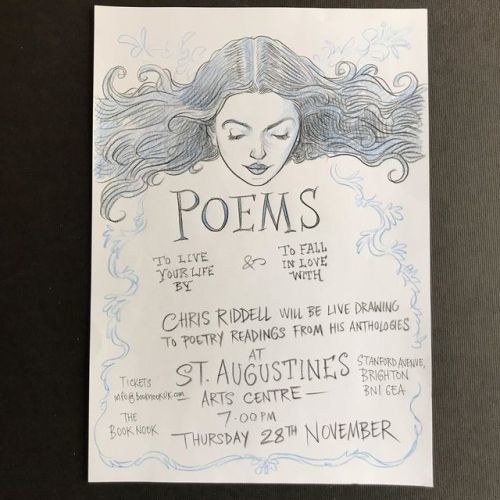 POEMS
TO LIVE
YOUR LIFE
BY
&
TO FALL
IN LOVE
WITH
CHRIS RIDDELL WILL BE LIVE DRAWING
TO POETRY READINGS FROM HIS ANTHOLOGIES
AT
ST. AUGUSTINES
ARTS CENTRE —
STANFORD AVENUE,
BRIGHTON
BN1 6EA
7.00 PM
THURSDAY 28TH NOVEMBER
TICKETS
info@booknookuk.com
THE
BOOK NOOK